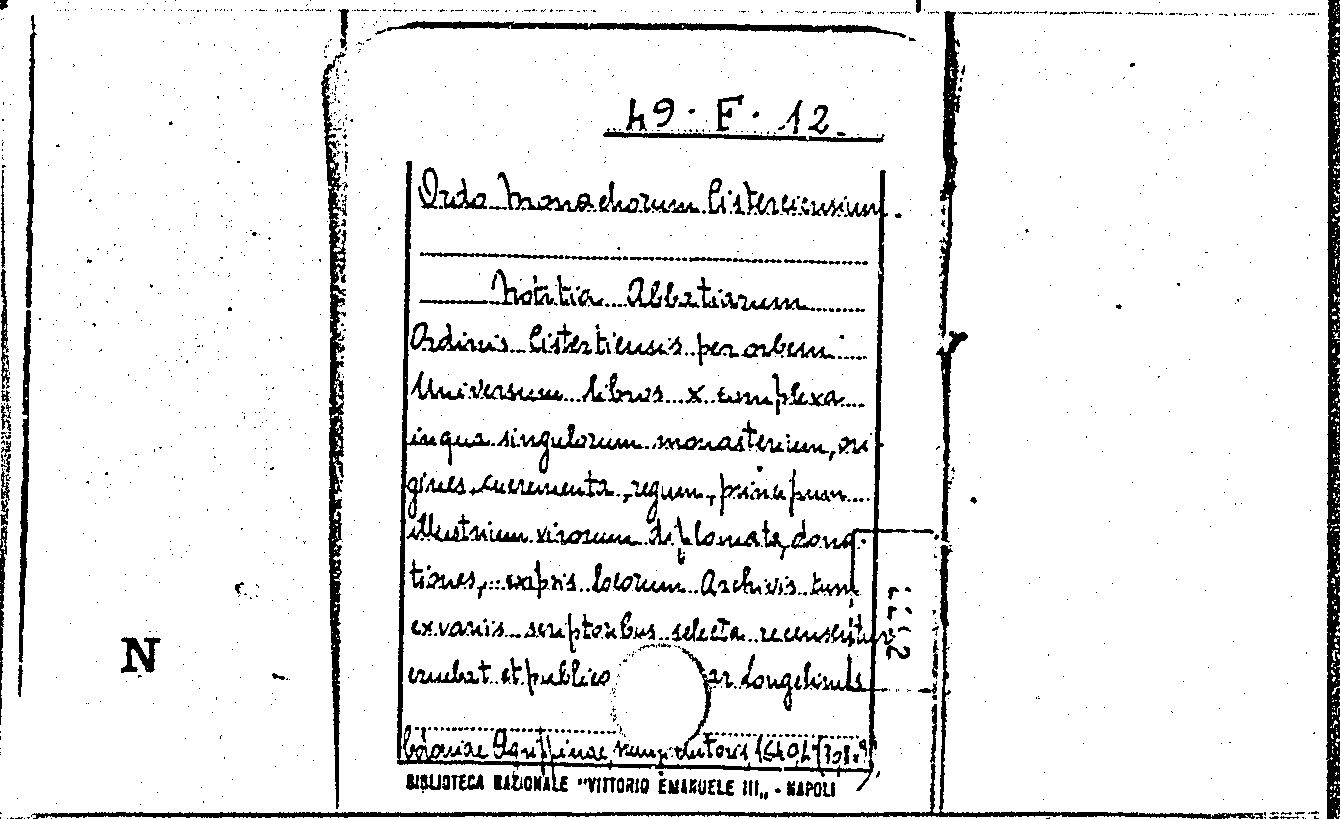 49. F. 12.
Ordo Monachorum Cisterciensium.
Notitia Abbatiarum
Ordinis Cistertiensis per orbem
Universum libros x complexa
inqua singulorum monasterium, ori-
gines, incrementa, regum, principum
illustrium virorum diplomata, dona-
tiones, exapris locorum Archivis tum
ex variis scriptoribus selecta recensentur
eruebat et public ar Longelinus
Coloniae Agrippinae, 1640
BIBLIOTECA NAZIONALE "VITTORIO EMANUELE III„ - NAPOLI
N